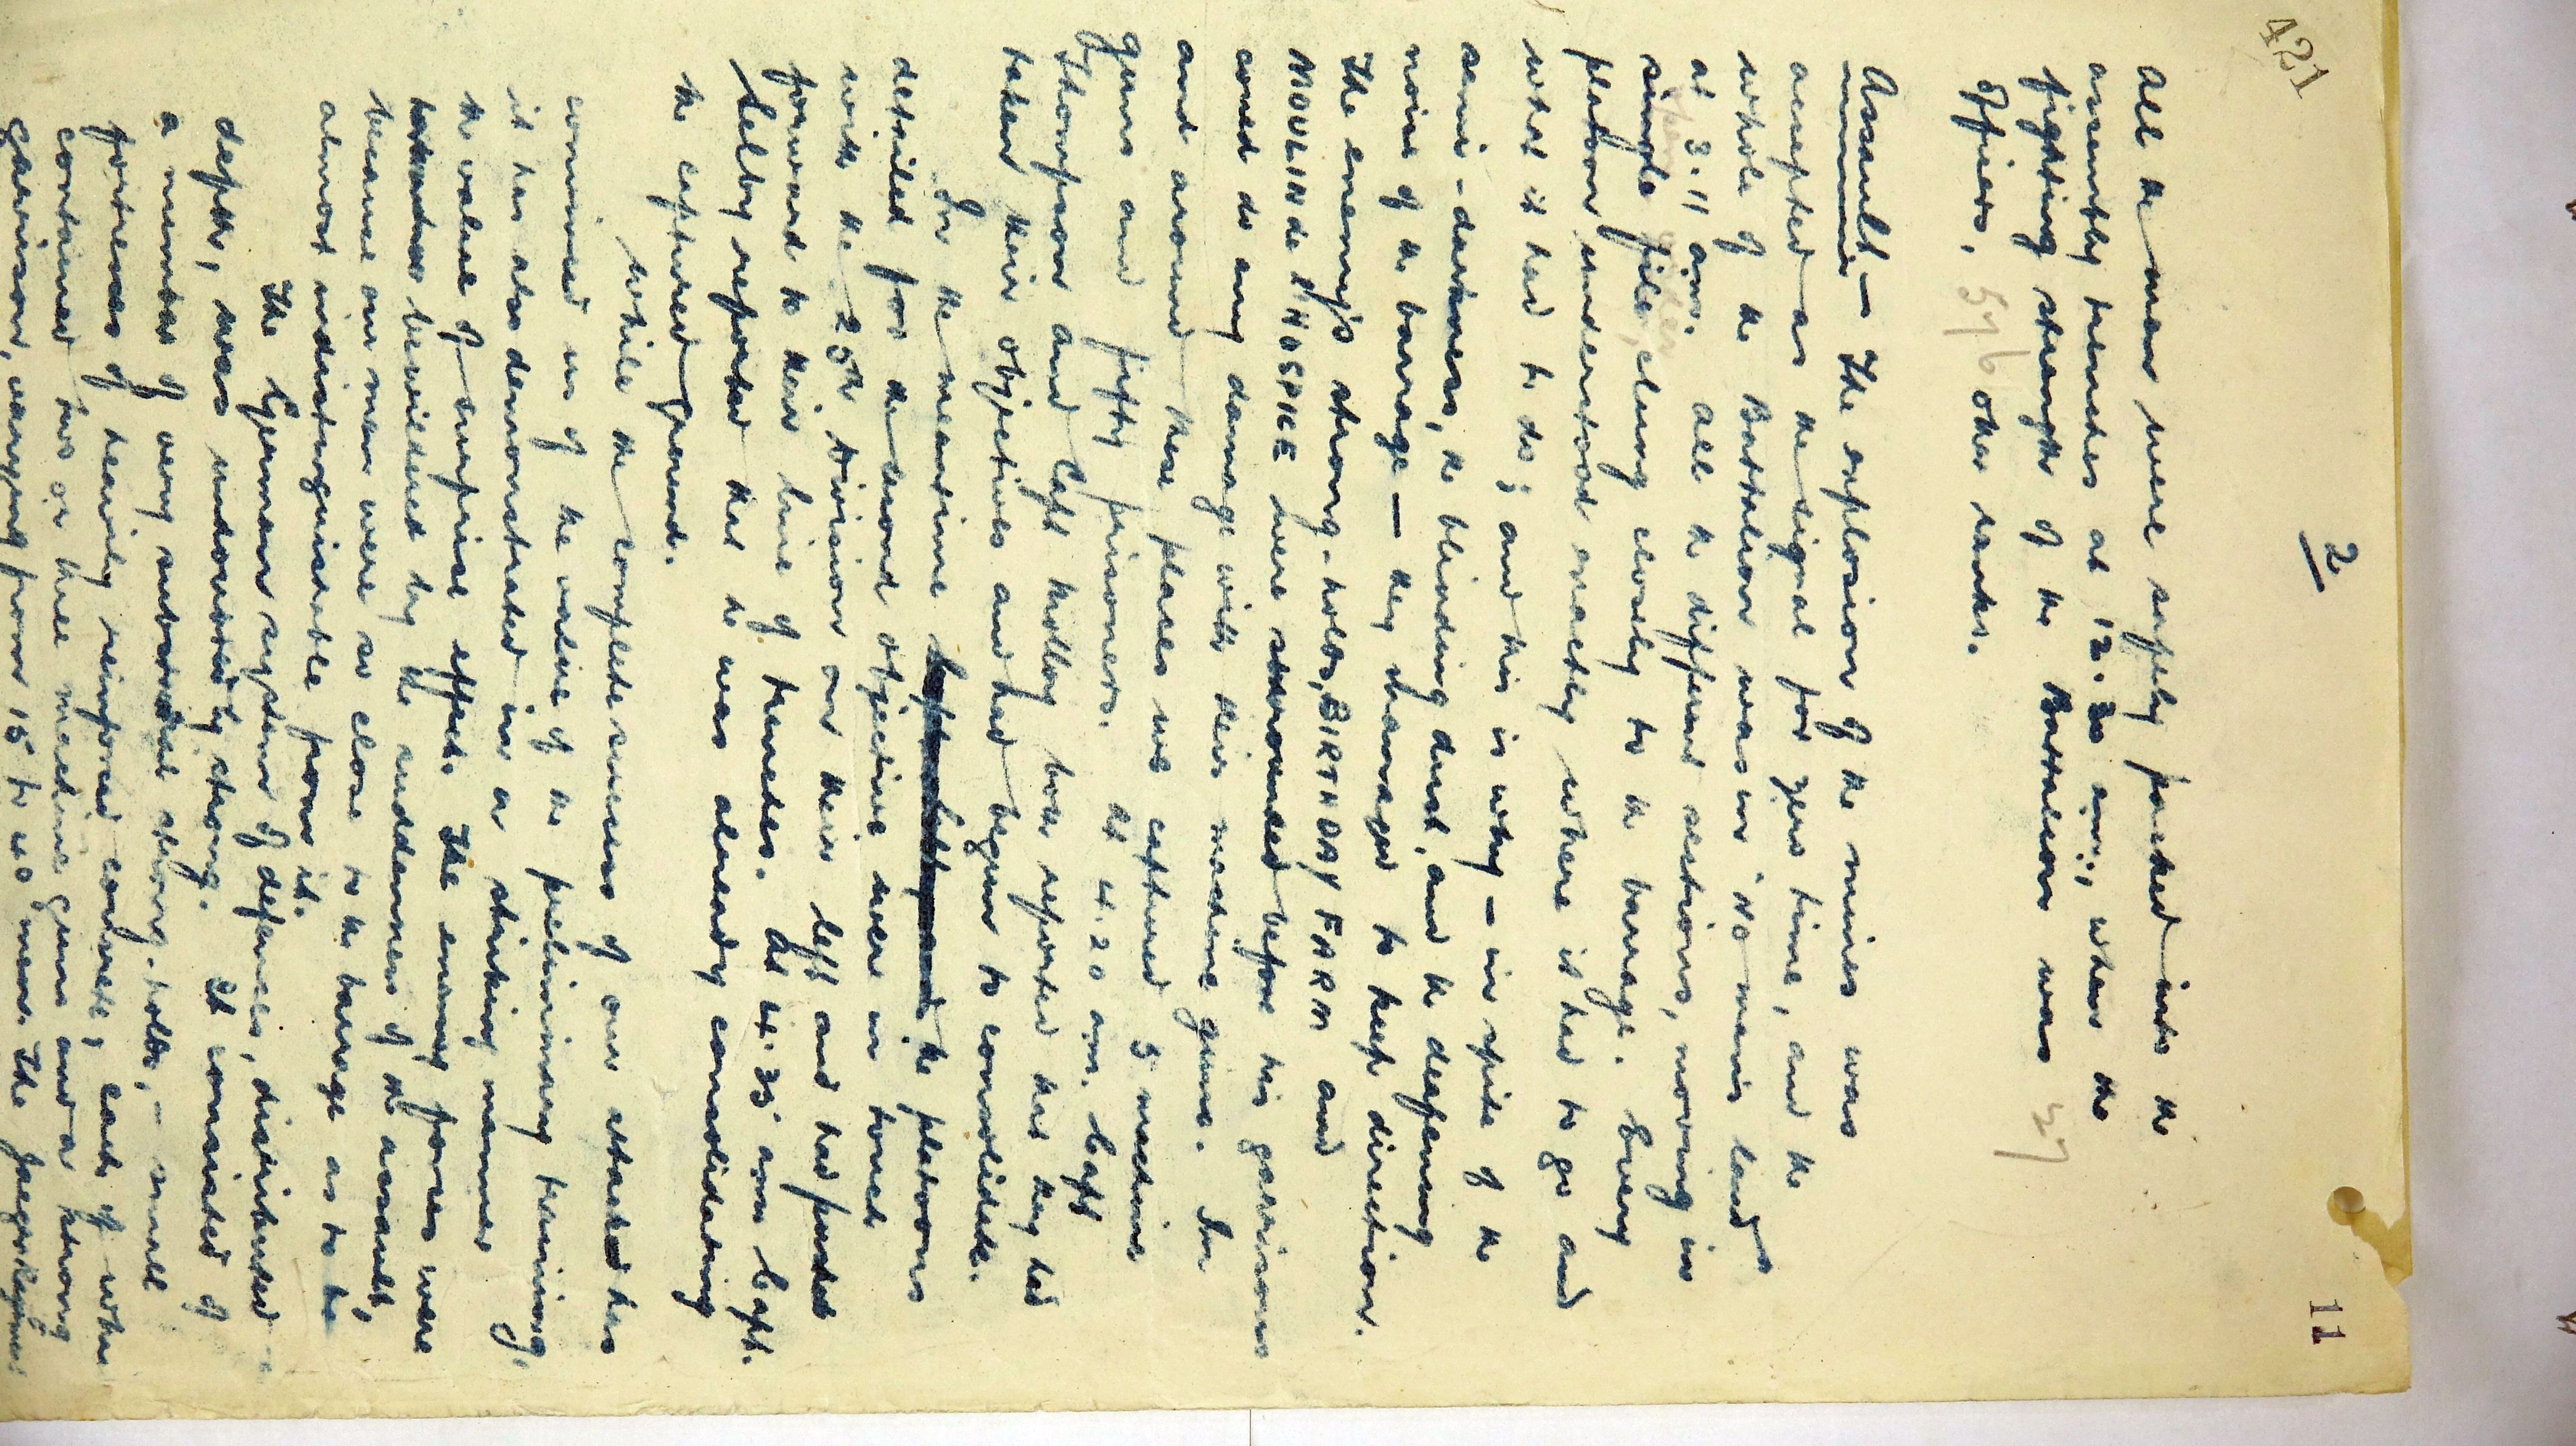 421
2
11
All the men were safely packed into the
assembly trenches at 12.30 am, when the
fighting strength of the Battalion was 37
Officers, 576 other ranks.
Assault — The explosion of the mines was
accepted as the signal for zero time, and the
whole of the Battalion was in No man's land
at 3.11 am. All the different sections, moving in
single file, clung closely to the barrage. Every
platoon understood exactly where it had to go and
what it had to do; and this is why — in spite of the
semi-darkness, the blinding dust, and the deafening
noise of the barrage — they managed to keep direction.
The enemy's strong-holds, BIRTHDAY FARM and
MOULIN de L'HOSPICE were surrounded before his garrisons
could do any damage with their machine guns. In
and around these places we captured 5 machine
guns and fifty prisoners. At 4.20 am. Capt
Thompson and Capt Hedley both reported that they had
taken their objectives and had begun to consolidate.
In the meantime the platoons
detailed for the second objective were in touch
with the 25th Division on their left and had pushed
forward to their line of trenches. At 4.35 am Capt.
Selby reported that he was already consolidating
the captured ground.
While the complete success of our attack has
convinced us of the value of the preliminary training,
it has also demonstrated in a striking manner
the value of surprise effect. The enemy forces were
bewildered by the suddenness of the assault,
because our men were so close to the barrage as to be
almost indistinguishable from it.
The German system of defences, distributed in
depth, was undoubtedly strong. It consisted of
a number of very substantial strong-holds, — small
fortresses of heavily reinforced concrete, each of which
contained two or three machine guns and a strong
garrison, varying from 15 to 40 men. The Jaeger Regiment